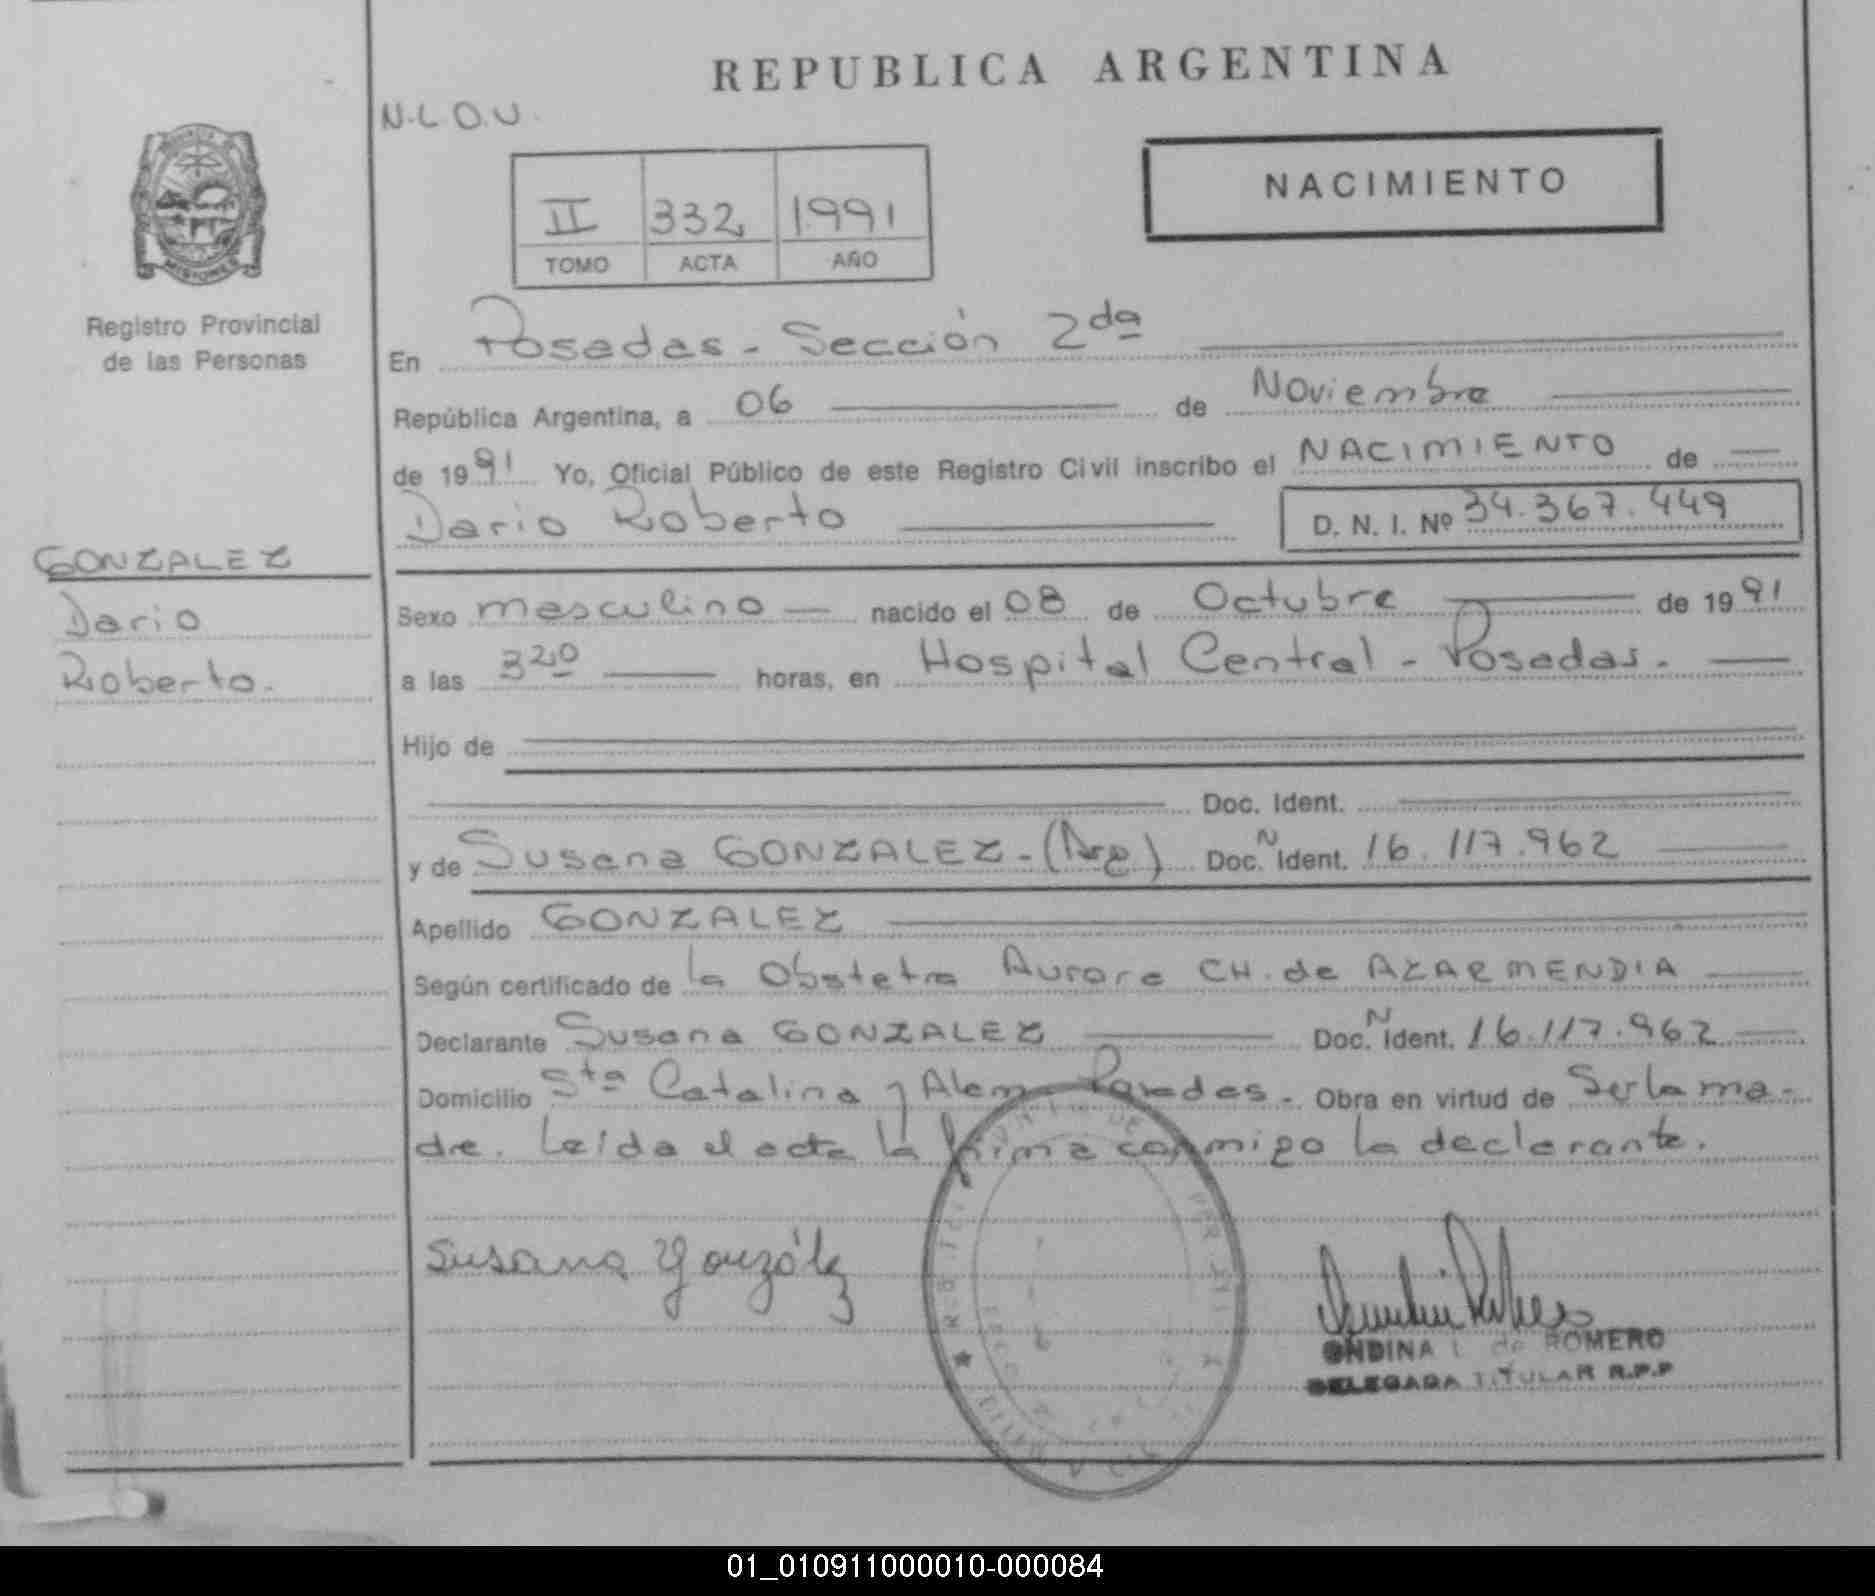 REPUBLICA ARGENTINA
N.L.O.U.
NACIMIENTO
II 332 1991
TOMO ACTA AÑO
MISIONES
Registro Provincial
de las Personas
En Posadas - Sección 2da
República Argentina, a 06 de Noviembre
de 1991 Yo, Oficial Público de este Registro Civil inscribo el NACIMIENTO de
Dario Roberto D. N. I. Nº 34.367.449
GONZALEZ
Dario
Roberto.
Sexo masculino nacido el 08 de Octubre de 1991
a las 3 20 horas, en Hospital Central - Posadas.
Hijo de
Doc. Ident.
y de Susana GONZALEZ - (Arg) Doc. N Ident. 16.117.962
Apellido GONZALEZ
Según certificado de la Obstetra Aurora CH. de AZARMENDIA
Declarante Susana GONZALEZ Doc. N Ident. 16.117.962
Domicilio Sta Catalina y Alem - Obra en virtud de Ser la ma-
dre. Leída el acta la firma conmigo la declarante.
Susana González
ONDINA de ROMERO
DELEGADA TITULAR R.P.P
01_010911000010-000084